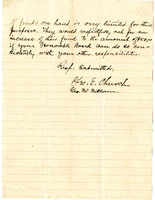 of funds on hand is very limited for this
purpose. They would respectfully ask for an
increase of this fund to the amount of
if your Honorable Board can do so con-
sistently with your other responsibilities.
Resp. Submitted
Geo. E. Church
Geo. W.